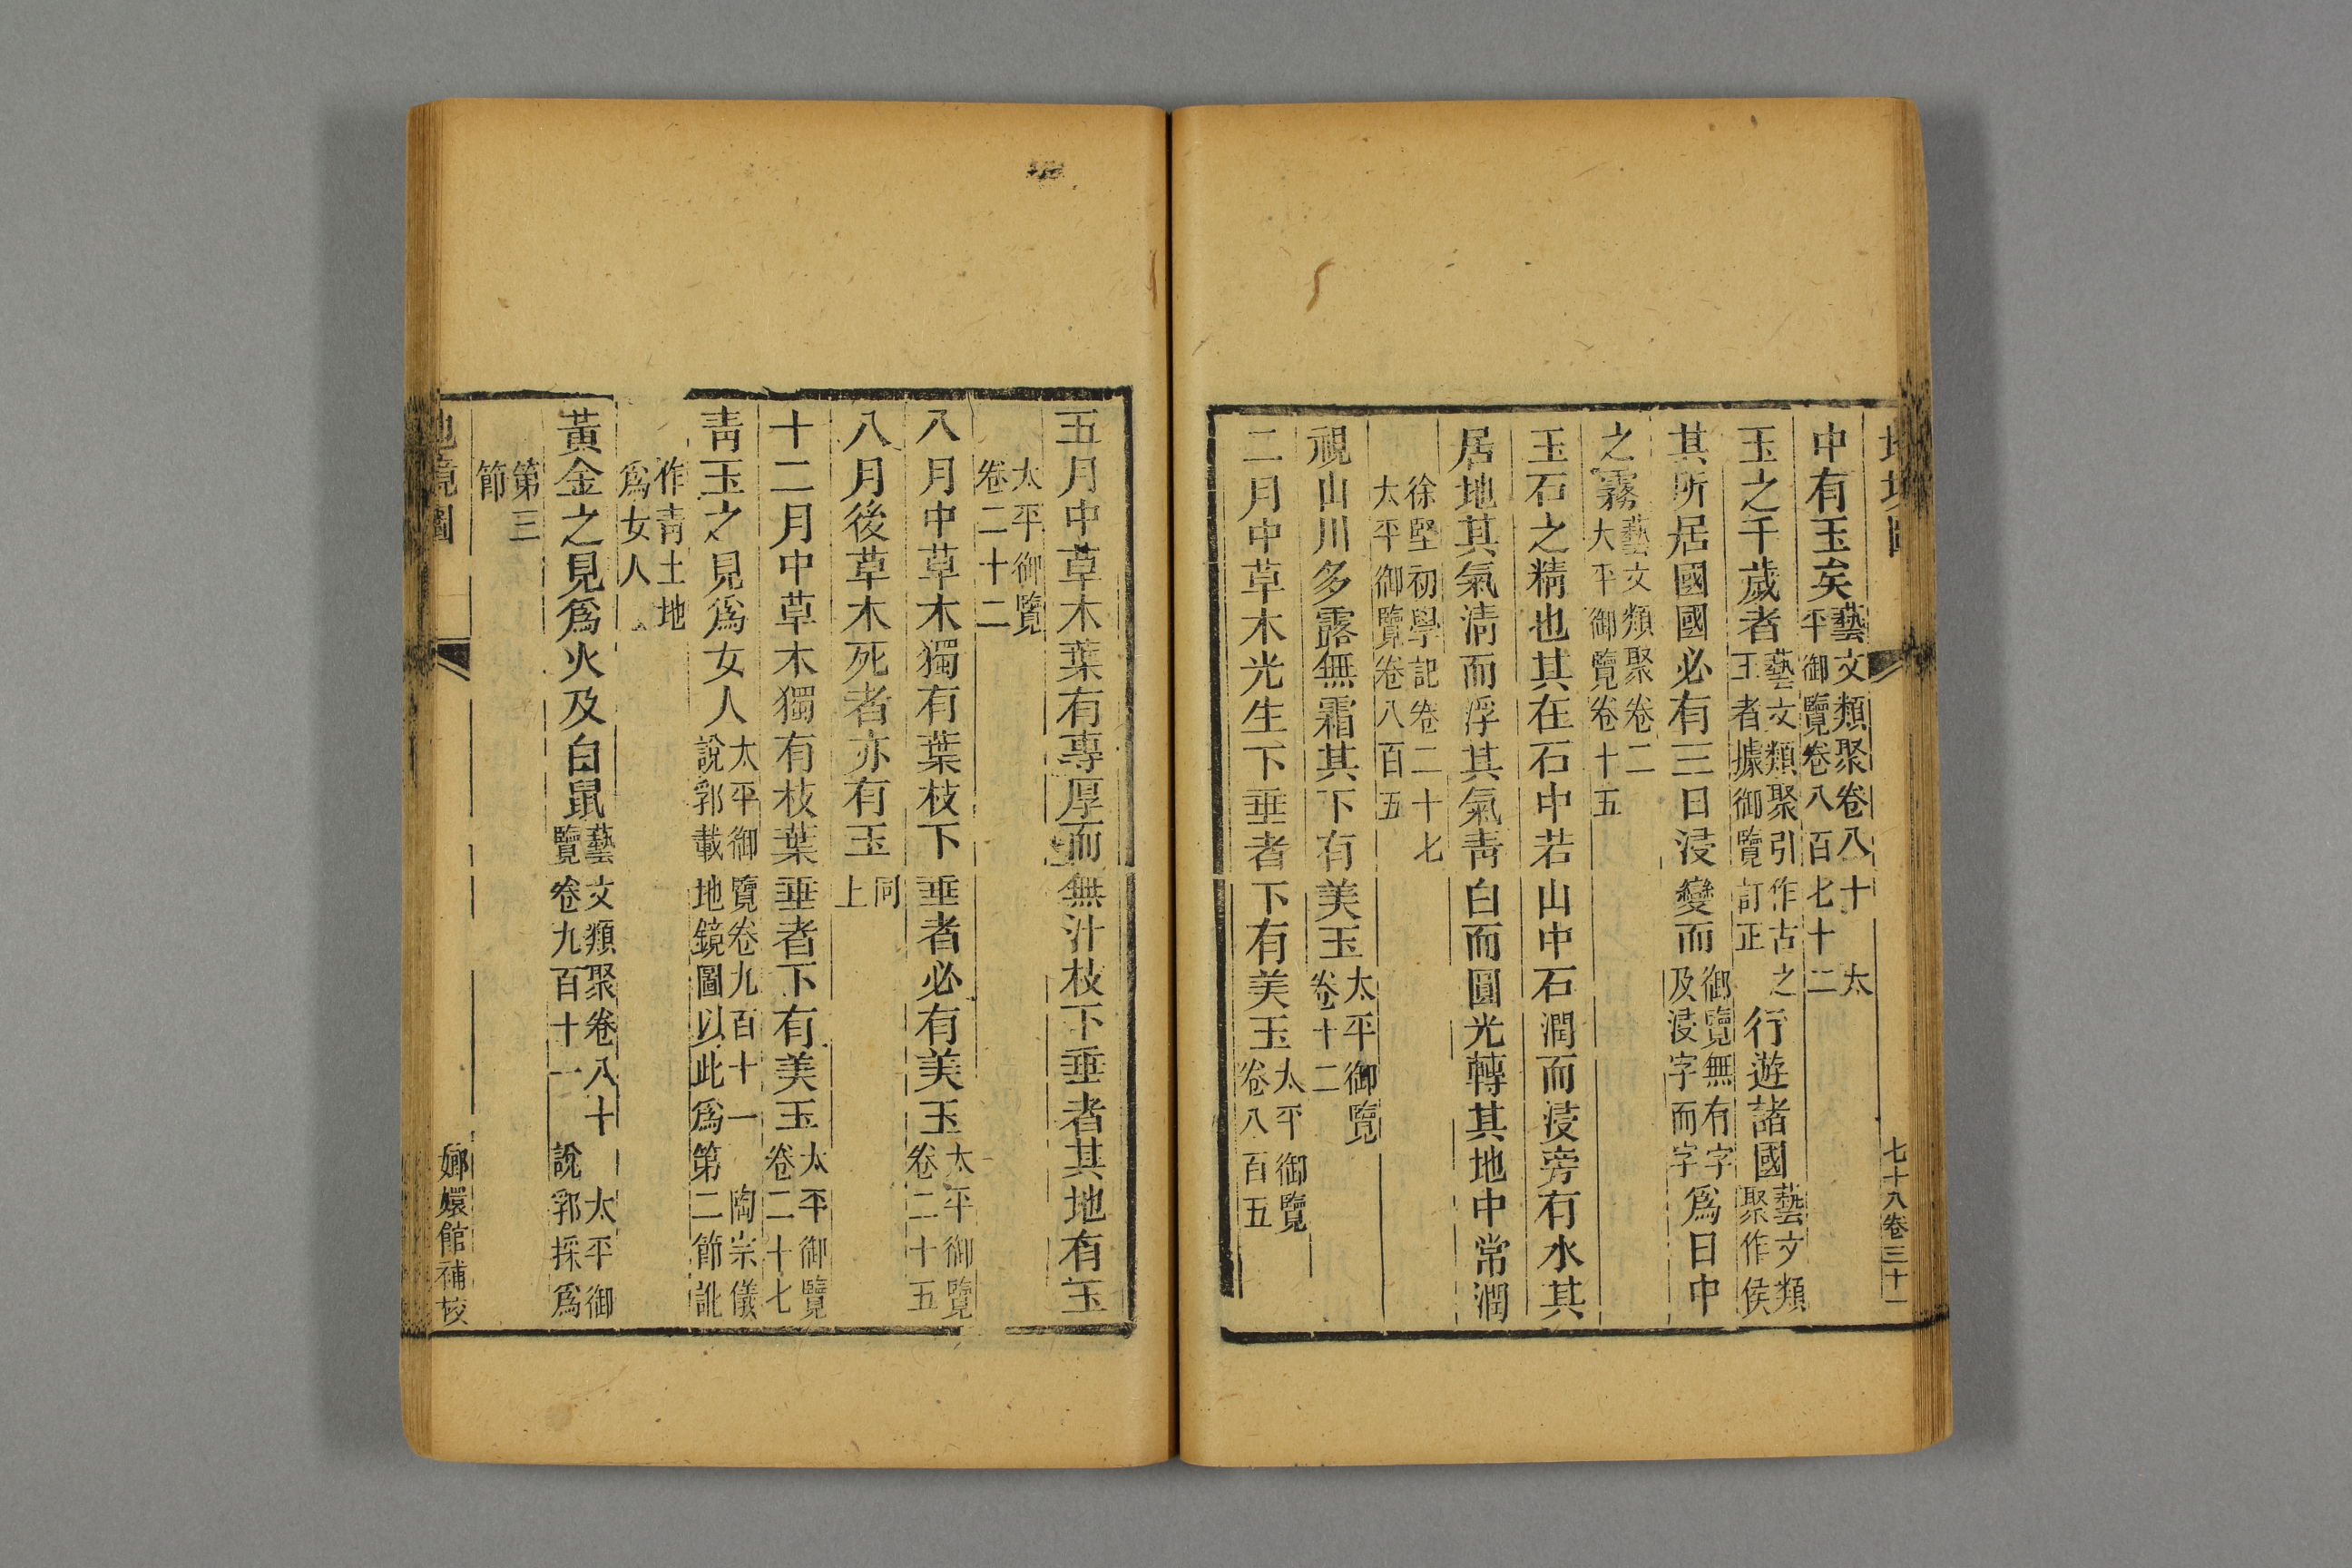 中有玉矣藝文類聚卷八十太平御覽卷八百七十二
玉之千歲者藝文類聚引作古之王者據御覽訂正行遊諸國藝文類聚作侯
其所居國國必有三日浸變而御覽無有字及浸字而字爲日中
之霧藝文類聚卷二太平御覽卷十五
玉石之精也其在石中若山中石潤而浸旁有水其
居地其氣淸而浮其氣靑白而圓光轉其地中常潤
徐堅初學記卷二十七太平御覽卷八百五
視山川多露無霜其下有美玉太平御覽卷十二
二月中草木光生下垂者下有美玉太平御覽卷八百五
七十八卷三十一
五月中草木葉有專厚而無汁枝下垂者其地有玉
太平御覽卷二十二
八月中草木獨有葉枝下垂者必有美玉太平御覽卷二十五
八月後草木死者亦有玉同上
十二月中草木獨有枝葉垂者下有美玉太平御覽卷二十七
靑玉之見爲女人太平御覽卷九百十一陶宗儀說郛載地鏡圖以此爲第二節訛
作靑土地爲女人
黃金之見爲火及白鼠藝文類聚卷八十太平御覽卷九百十一說郛採爲
第三節
地鏡圖
嫏嬛館補校